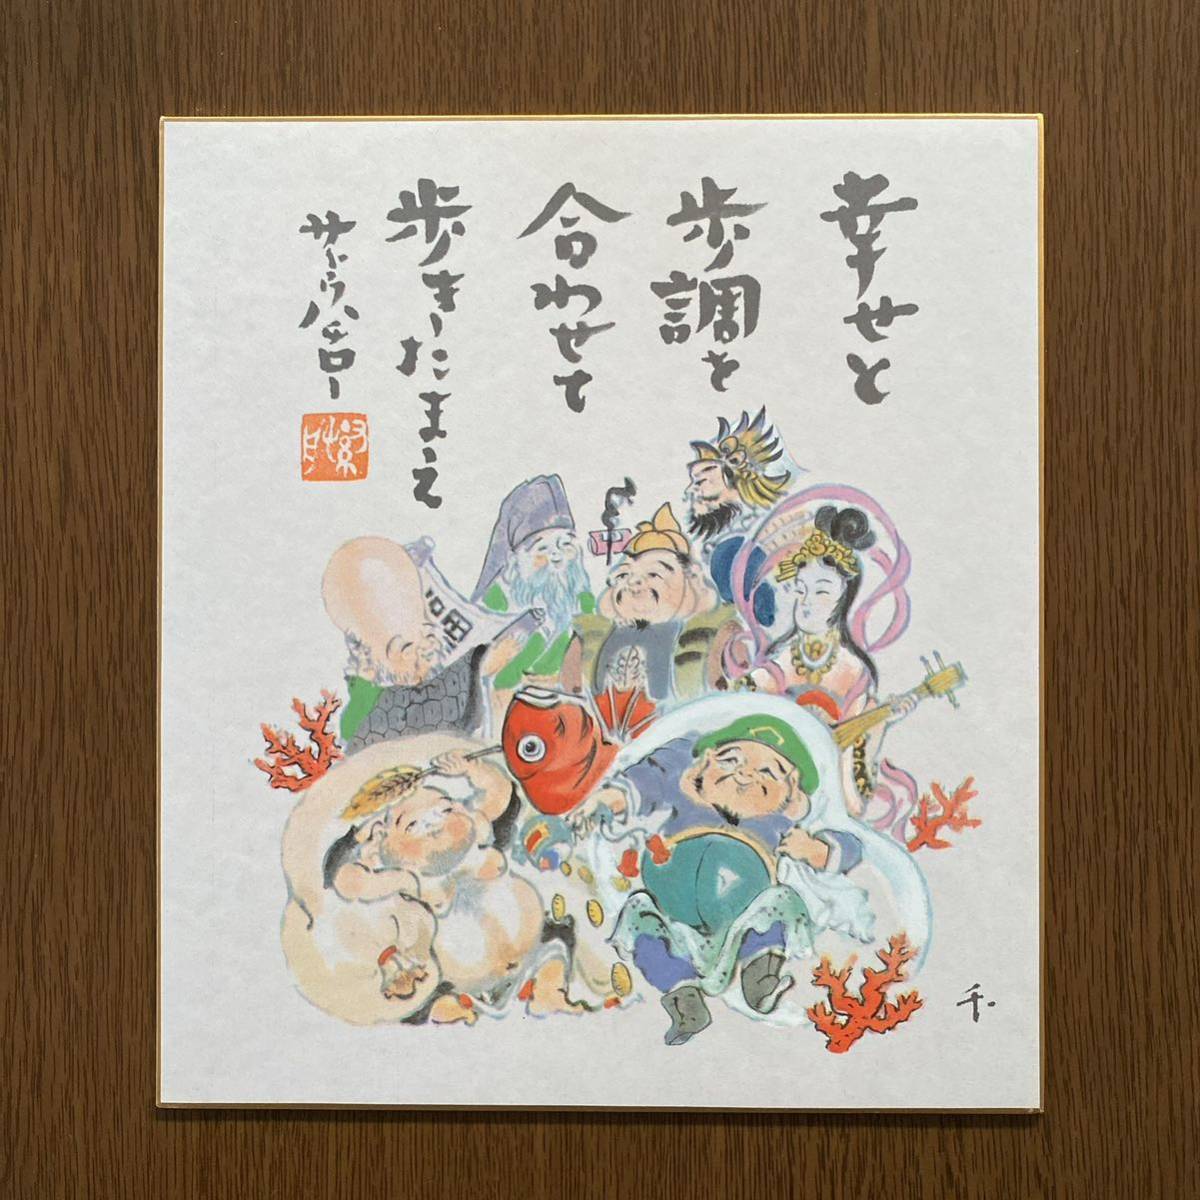 幸せと
歩調を
合わせて
歩きたまえ
サトウハチロー
千